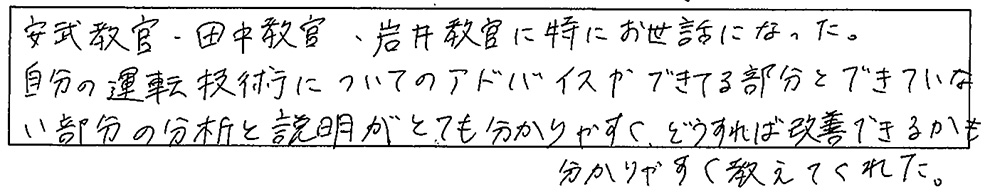 安武教官・田中教官、岩井教官に特にお世話になった。
自分の運転技術についてのアドバイスやできてる部分とできていな
い部分の分析と説明がとても分かりやすく、どうすれば改善できるかも
分かりやすく教えてくれた。